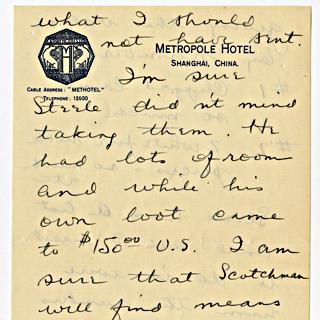 what I should
not have sent.
METROPOLE HOTEL
SHANGHAI, CHINA.
CABLE ADDRESS: "METHOTEL"
TELEPHONE: 12500
I'm sure
Steele didn't mind
taking them. He
had lots of room
and while his
own loot came
to $150.00 U.S. I am
sure that Scotchman
will find means